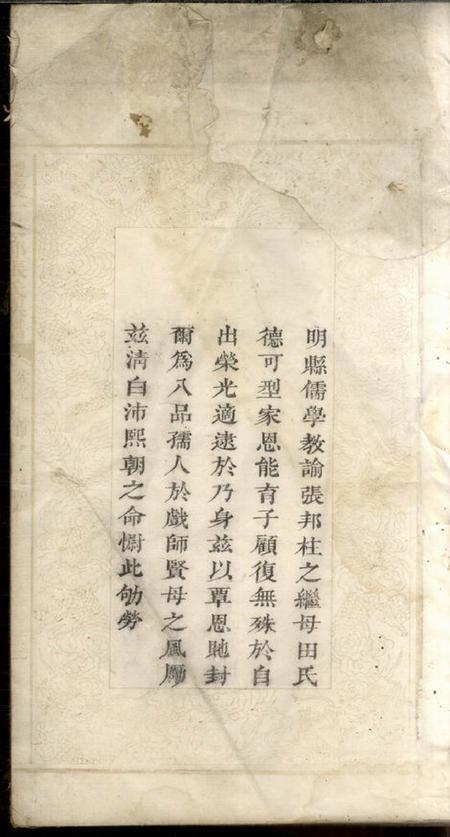 明縣儒學教諭張邦柱之繼母田氏
德可型家恩能育子顧復無殊於自
出榮光適逮於乃身兹以覃恩貤封
爾爲八品孺人於戲師賢母之風勵
兹淸白沛熙朝之命慰此劬勞